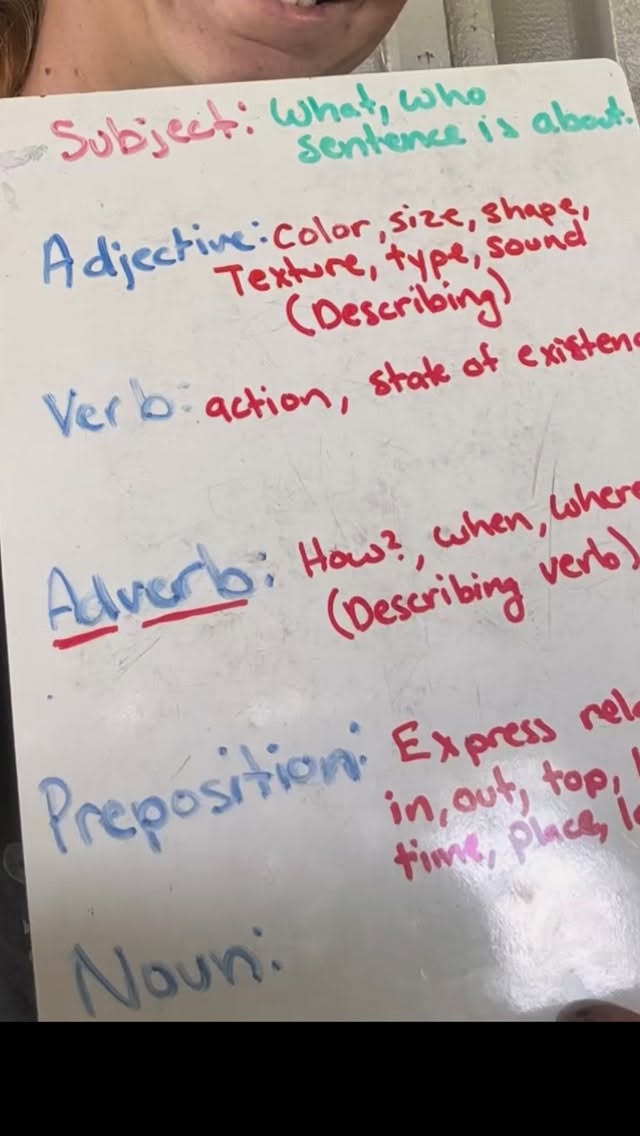 Subject: What, who
sentence is about.
Adjective: color, size, shape,
Texture, type, sound
(Describing)
Verb: action, state of
Adverb: How?, when,
(Describing verb)
Preposition: Express
in, out, top,
time, place,
Noun: